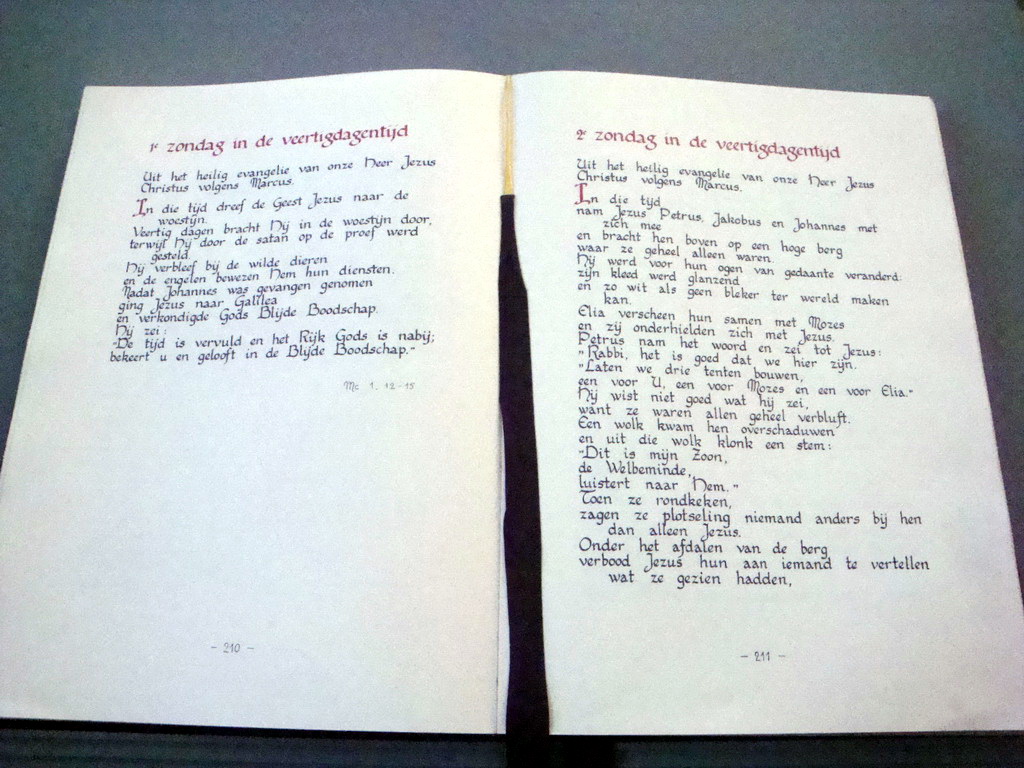 1e zondag in de veertigdagentijd
Uit het heilig evangelie van onze Heer Jezus
Christus volgens Marcus.
In die tijd dreef de Geest Jezus naar de
woestijn.
Veertig dagen bracht Hij in de woestijn door,
terwijl Hij door de satan op de proef werd
gesteld.
Hij verbleef bij de wilde dieren
en de engelen bewezen Hem hun diensten.
Nadat Johannes was gevangen genomen
ging Jezus naar Galilea
en verkondigde Gods Blijde Boodschap.
Hij zei:
"De tijd is vervuld en het Rijk Gods is nabij;
bekeert u en gelooft in de Blijde Boodschap."
Mc 1, 12-15
- 210 -
2e zondag in de veertigdagentijd
Uit het heilig evangelie van onze Heer Jezus
Christus volgens Marcus.
In die tijd
nam Jezus Petrus, Jakobus en Johannes met
zich mee
en bracht hen boven op een hoge berg
waar ze geheel alleen waren.
Hij werd voor hun ogen van gedaante veranderd:
zijn kleed werd glanzend
en zo wit als geen bleker ter wereld maken
kan.
Elia verscheen hun samen met Mozes
en zij onderhielden zich met Jezus.
Petrus nam het woord en zei tot Jezus:
"Rabbi, het is goed dat we hier zijn.
"Laten we drie tenten bouwen,
een voor U, een voor Mozes en een voor Elia."
Hij wist niet goed wat hij zei,
want ze waren allen geheel verbluft.
Een wolk kwam hen overschaduwen
en uit die wolk klonk een stem:
"Dit is mijn Zoon,
de Welbeminde,
luistert naar Hem."
Toen ze rondkeken,
zagen ze plotseling niemand anders bij hen
dan alleen Jezus.
Onder het afdalen van de berg
verbood Jezus hun aan iemand te vertellen
wat ze gezien hadden,
- 211 -